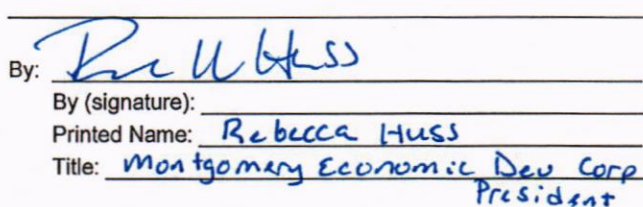 By: Huss
By (signature):
Printed Name: Rebecca Huss
Title: Montgomery Economic Dev Corp
President